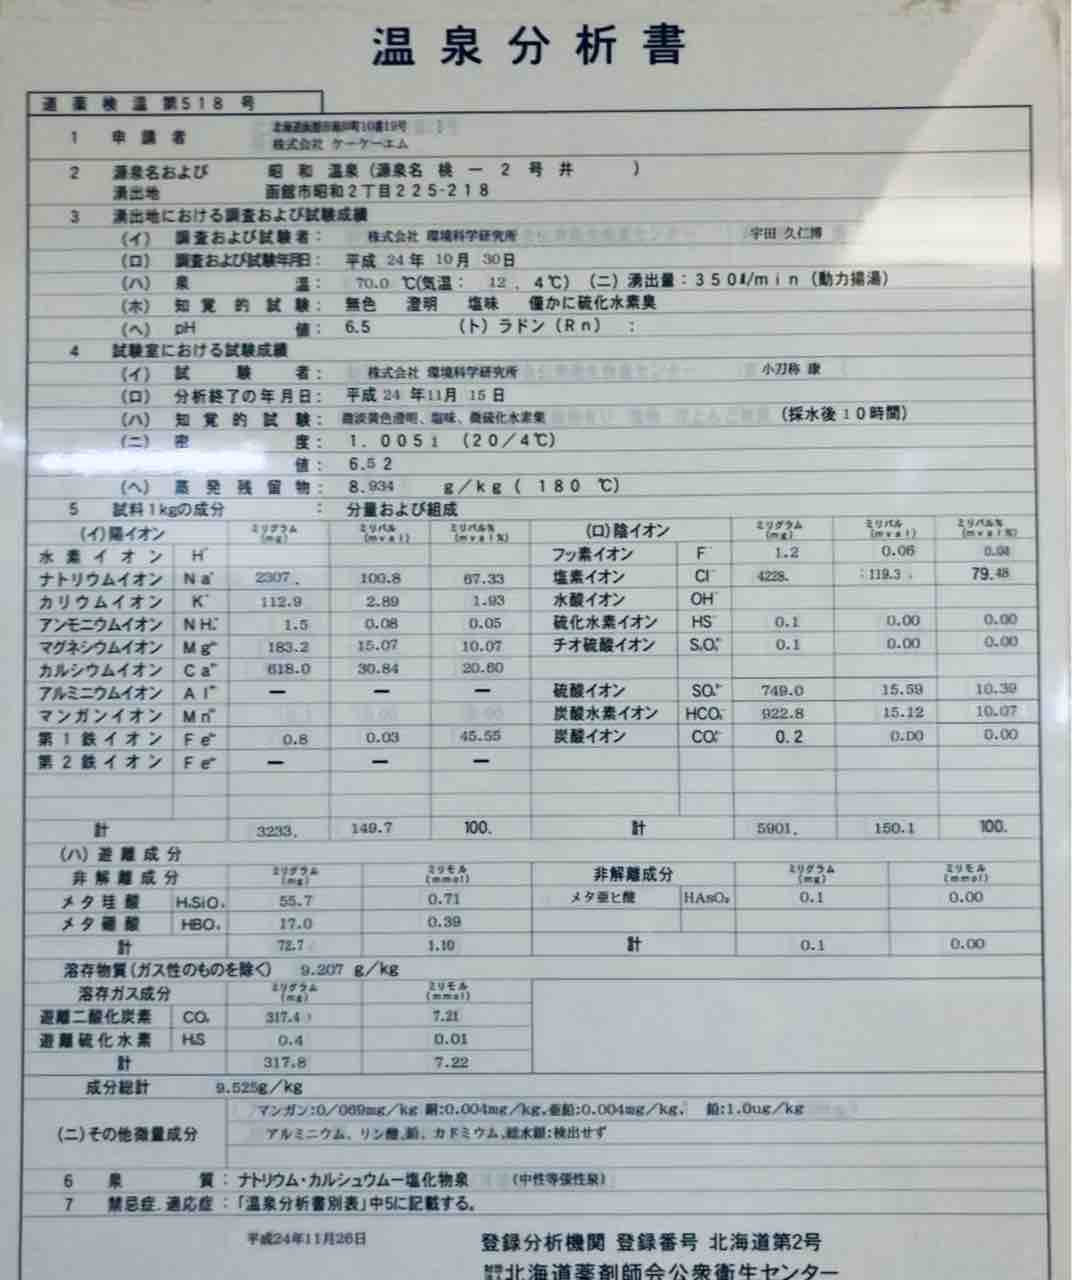 温泉分析書
道薬検温第518号
1 申請者 北海道函館市 町10番19号
株式会社 ケーケーエム
2 源泉名および 昭和温泉(源泉名 桃一2号井 )
湧出地 函館市昭和2丁目225-218
3 湧出地における調査および試験成績
(イ) 調査および試験者: 株式会社 環境科学研究所 宇田 久仁博
(ロ) 調査および試験年月日: 平成 24年 10月 30日
(ハ) 泉温: 70.0 ℃(気温: 12.4℃) (ニ) 湧出量:350ℓ/min (動力揚湯)
(ホ) 知覚的試験: 無色 澄明 塩味 僅かに硫化水素臭
(ヘ) pH値: 6.5 (ト) ラドン(Rn) :
4 試験室における試験成績
(イ) 試験者: 株式会社 環境科学研究所 小刀称 康
(ロ) 分析終了の年月日: 平成 24 年11月 15日
(ハ) 知覚的試験: 微淡黄色澄明、塩味、微硫化水素臭 (採水後10時間)
(ニ) 密度: 1.0051 (20/4℃)
値: 6.52
(ヘ) 蒸発残留物: 8.934 g/kg ( 180 ℃)
5 試料1kgの成分 : 分量および組成
(イ)陽イオン ミリグラム(mg) ミリバル(mval) ミリバル%(mval%) (ロ)陰イオン ミリグラム(mg) ミリバル(mval) ミリバル%(mval%)
水素イオン H⁺ フッ素イオン F⁻ 1.2 0.06 0.04
ナトリウムイオン Na⁺ 2307. 100.8 67.33 塩素イオン Cl⁻ 4228. 119.3 79.48
カリウムイオン K⁺ 112.9 2.89 1.93 水酸イオン OH⁻
アンモニウムイオン NH₄⁺ 1.5 0.08 0.05 硫化水素イオン HS⁻ 0.1 0.00 0.00
マグネシウムイオン Mg²⁺ 183.2 15.07 10.07 チオ硫酸イオン S₂O₃²⁻ 0.1 0.00 0.00
カルシウムイオン Ca²⁺ 618.0 30.84 20.60
アルミニウムイオン Al³⁺ ー ー ー 硫酸イオン SO₄²⁻ 749.0 15.59 10.39
マンガンイオン Mn²⁺ 炭酸水素イオン HCO₃⁻ 922.8 15.12 10.07
第1鉄イオン Fe²⁺ 0.8 0.03 45.55 炭酸イオン CO₃²⁻ 0.2 0.00 0.00
第2鉄イオン Fe³⁺ ー ー ー
計 3233. 149.7 100. 計 5901. 150.1 100.
(ハ)遊離成分
非解離成分 ミリグラム(mg) ミリモル(mmol) 非解離成分 ミリグラム(mg) ミリモル(mmol)
メタ珪酸 H₂SiO₃ 55.7 0.71 メタ亜ヒ酸 HAsO₂ 0.1 0.00
メタ硼酸 HBO₂ 17.0 0.39
計 72.7 1.10 計 0.1 0.00
溶存物質(ガス性のものを除く) 9.207 g/kg
溶存ガス成分 ミリグラム(mg) ミリモル(mmol)
遊離二酸化炭素 CO₂ 317.4 7.21
遊離硫化水素 H₂S 0.4 0.01
計 317.8 7.22
成分総計 9.525g/kg
マンガン:0/069mg/kg 銅:0.004mg/kg,亜鉛:0.004mg/kg, 鉛:1.0ug/kg
(ニ)その他微量成分 アルミニウム、リン酸,鉛、カドミウム,総水銀:検出せず
6 泉質: ナトリウム・カルシュウムー塩化物泉 (中性等張性泉)
7 禁忌症.適応症:「温泉分析書別表」中5に記載する。
平成24年11月26日 登録分析機関 登録番号 北海道第2号
財団法人北海道薬剤師会公衆衛生センター